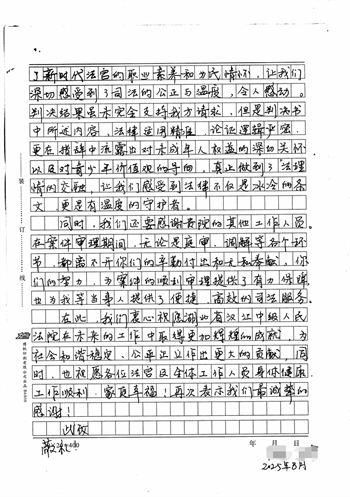 了新时代法官的职业素养和为民情怀，让我们
深切感受到了司法的公正与温度，令人感动。
判决结果虽未完全支持我方请求，但是判决书
中所述内容，法律运用精准，论证逻辑严密，
更在措辞中流露出对未成年人权益的深切关怀
以及对青少年价值观的导向，真正做到了法理
情的交融，让我们感受到法律不仅是冰冷的条
文，更是有温度的守护者。
同时，我们还要感谢贵院的其他工作人员。
在案件审理期间，无论是庭审、调解等各个环
节，都离不开你们的辛勤付出和无私奉献，你
们的努力，为案件的顺利审理提供了有力保障，
也为我等当事人提供了便捷、高效的司法服务。
在此，我们衷心祝愿湖北省汉江中级人民
法院在未来的工作中取得更加辉煌的成就，为
社会和谐稳定、公平正义作出更大的贡献，同
时，也祝愿各位法官及全体工作人员身体健康、
工作顺利、家庭幸福！再次表示我们最诚挚的
感谢！
此致
敬礼
年 月 日
2025年8月
装
订
线